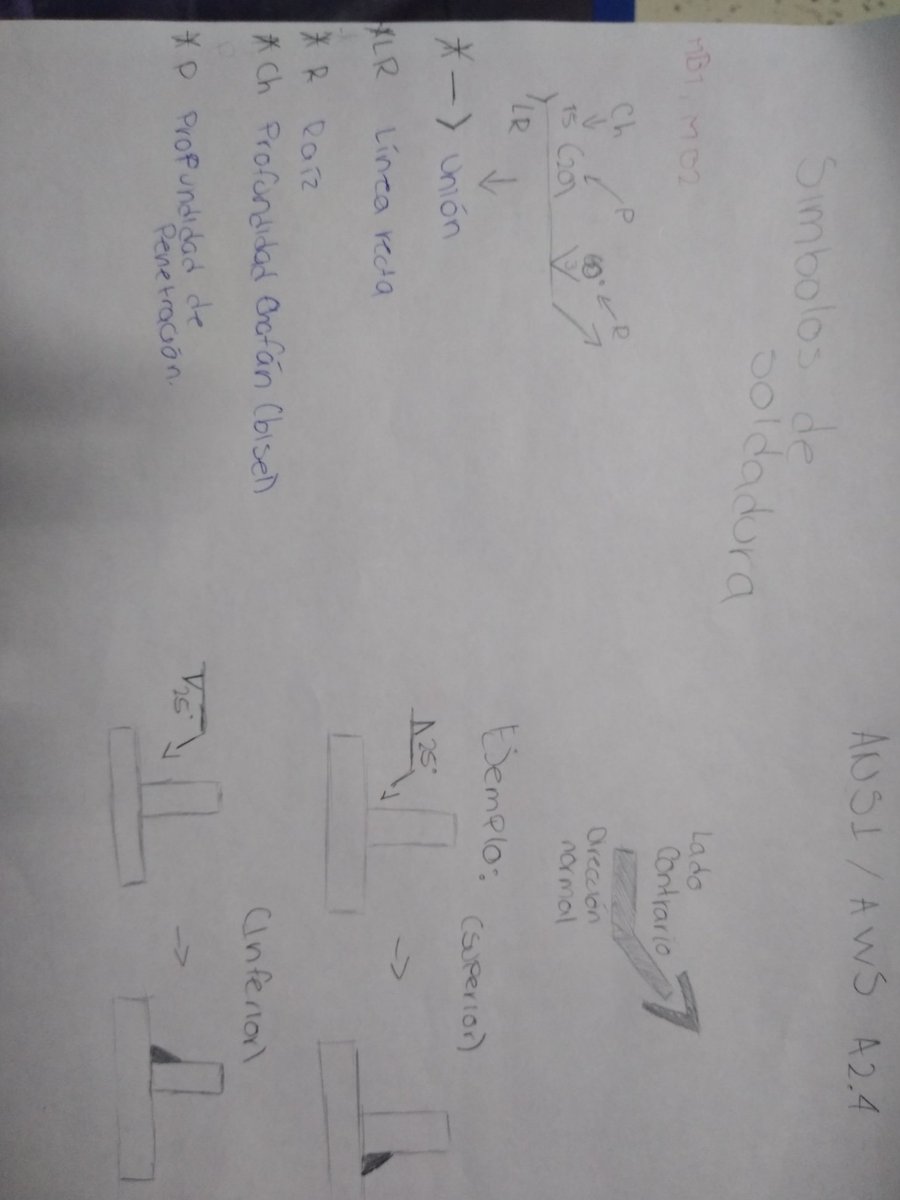 ANSI / AWS A2.4
Simbolos de
Soldadura
MB1, M02
Ch
P
R
15 (20)
60°
3
LR
Lado
Contrario
Dirección
normal
* —> Unión
* LR Línea recta
* R Raíz
* Ch Profundidad Chafán (bisel)
* P Profundidad de
Penetración.
Ejemplo: (Superior)
25°
(Inferior)
25°